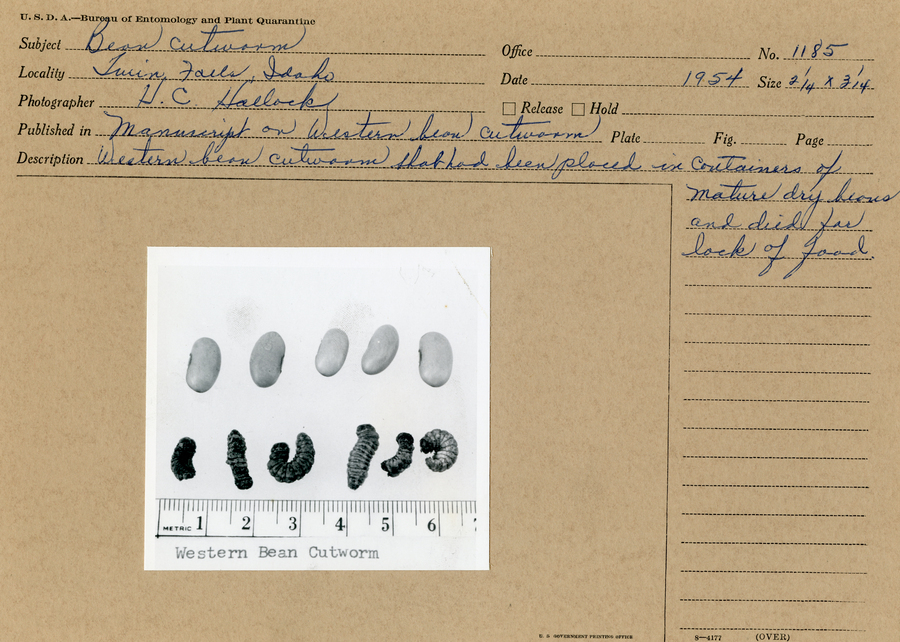 U. S. D. A.—Bureau of Entomology and Plant Quarantine
Subject Bean cutworm Office No. 1185
Locality Twin Falls, Idaho Date 1954 Size 2 1/4 x 3 1/4
Photographer H. C. Hallock Release Hold
Published in Manuscript on Western bean cutworm Plate Fig. Page
Description Western bean cutworm that had been placed in containers of
mature dry beans
and died for
lack of food.
METRIC 1 2 3 4 5 6
Western Bean Cutworm
U. S. GOVERNMENT PRINTING OFFICE
8—4177 (OVER)